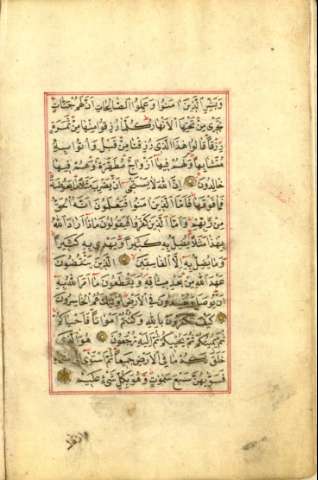 وَبَشِّرِ الَّذِينَ اٰمَنُوا وَعَمِلُوا الصَّالِحَاتِ اَنَّ لَهُمْ جَنَّاتٍ
تَجْرِى مِنْ تَحْتِهَا الْاَنْهَارُ كُلَّمَا رُزِقُوا مِنْهَا مِنْ ثَمَرَةٍ
رِزْقًا قَالُوا هٰذَا الَّذِى رُزِقْنَا مِنْ قَبْلُ وَاُتُوا بِهِ
مُتَشَابِهًا وَلَهُمْ فِيهَا اَزْوَاجٌ مُطَهَّرَةٌ وَهُمْ فِيهَا
خَالِدُونَ اِنَّ اللّٰهَ لَا يَسْتَحْيِ اَنْ يَضْرِبَ مَثَلًا مَا بَعُوضَةً
فَمَا فَوْقَهَا فَاَمَّا الَّذِينَ اٰمَنُوا فَيَعْلَمُونَ اَنَّهُ الْحَقُّ
مِنْ رَبِّهِمْ وَاَمَّا الَّذِينَ كَفَرُوا فَيَقُولُونَ مَاذَا اَرَادَ اللّٰهُ
بِهٰذَا مَثَلًا يُضِلُّ بِهِ كَثِيرًا وَيَهْدِى بِهِ كَثِيرًا
وَمَا يُضِلُّ بِهِ اِلَّا الْفَاسِقِينَ الَّذِينَ يَنْقُضُونَ
عَهْدَ اللّٰهِ مِنْ بَعْدِ مِيثَاقِهِ وَيَقْطَعُونَ مَا اَمَرَ اللّٰهُ بِهِ
اَنْ يُوصَلَ وَيُفْسِدُونَ فِى الْاَرْضِ اُولٰئِكَ هُمُ الْخَاسِرُونَ
كَيْفَ تَكْفُرُونَ بِاللّٰهِ وَكُنْتُمْ اَمْوَاتًا فَاَحْيَاكُمْ
ثُمَّ يُمِيتُكُمْ ثُمَّ يُحْيِيكُمْ ثُمَّ اِلَيْهِ تُرْجَعُونَ هُوَ الَّذِى
خَلَقَ لَكُمْ مَا فِى الْاَرْضِ جَمِيعًا ثُمَّ اسْتَوٰى
فَسَوّٰيهُنَّ سَبْعَ سَمٰوَاتٍ وَهُوَ بِكُلِّ شَىْءٍ عَلِيمٌ